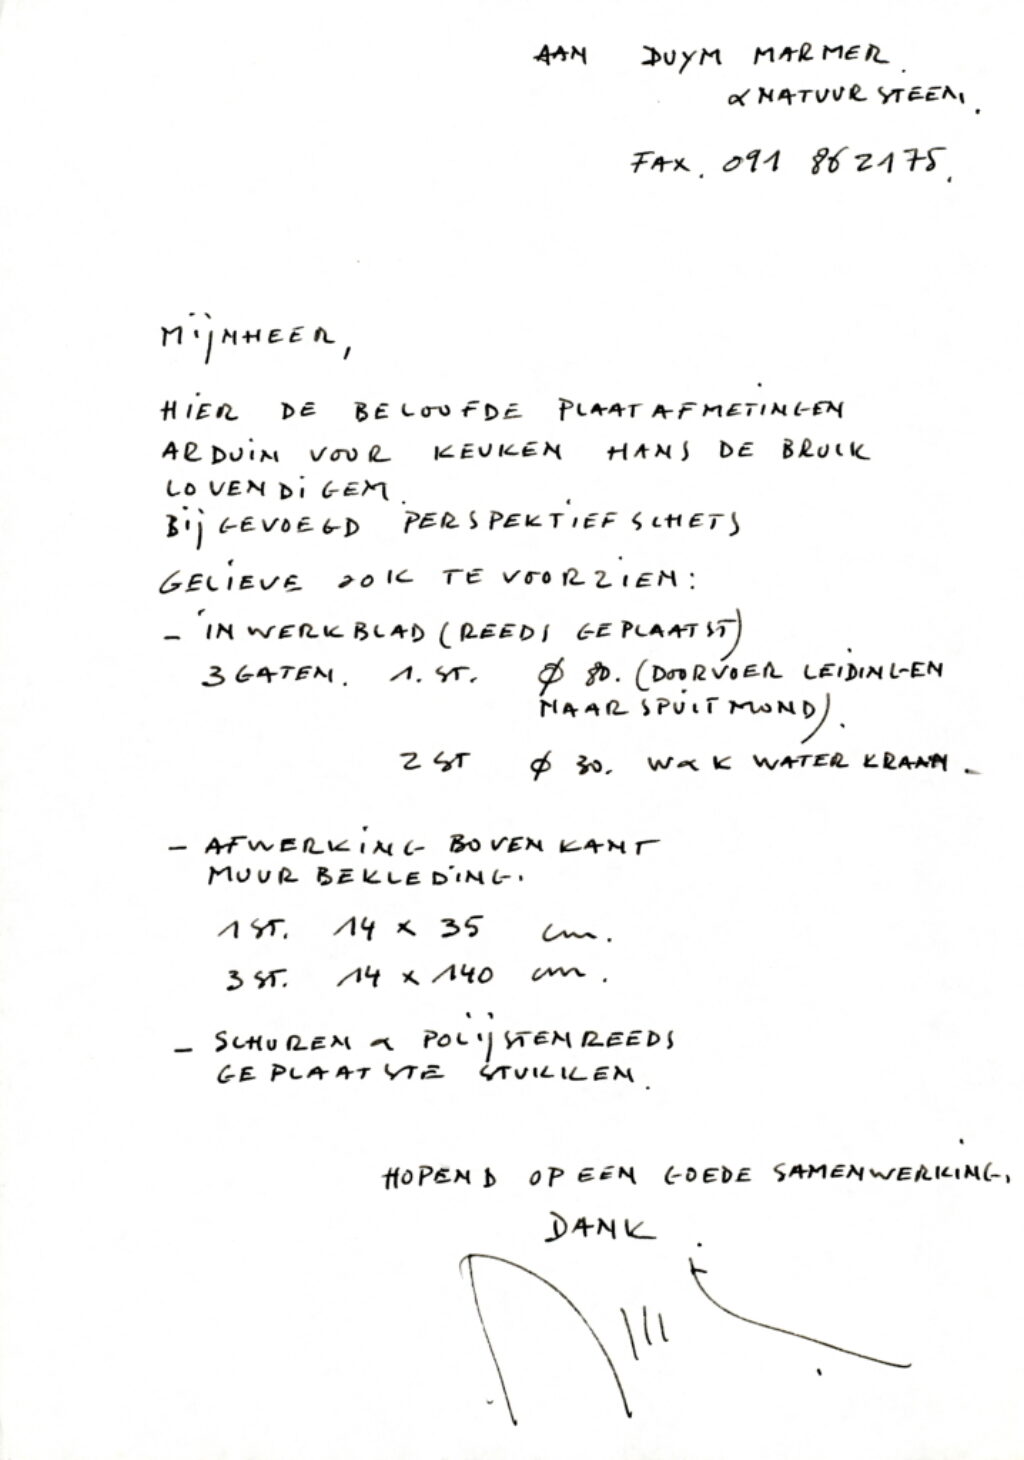 AAN DUYM MARMER.
& NATUURSTEEN.
FAX. 091 862175.
MIJNHEER,
HIER DE BELOOFDE PLAATAFMETINGEN
ARDUIN VOOR KEUKEN HANS DE BRUCK
LOVENDIGEM.
BIJGEVOEGD PERSPEKTIEFSCHETS
GELIEVE OOK TE VOORZIEN:
- IN WERKBLAD (REEDS GEPLAATST)
3 GATEN. 1. ST. ⌀ 80. (DOORVOER LEIDINGEN
NAAR SPUITMOND).
2 ST ⌀ 30. W & K WATERKRAAN.
- AFWERKING BOVENKANT
MUURBEKLEDING.
1 ST. 14 x 35 cm.
3 ST. 14 x 140 cm.
- SCHUREN & POLIJSTEN REEDS
GEPLAATSTE STUKKEN.
HOPEND OP EEN GOEDE SAMENWERKING,
DANK